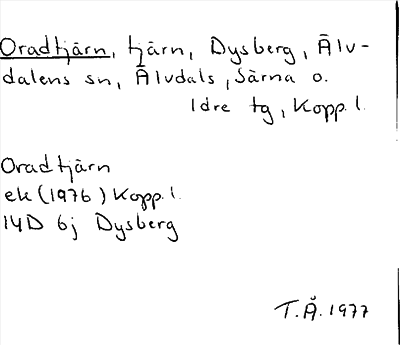 Oradtjärn, tjärn, Dysberg, Älv-
dalens sn, Älvdals, Särna o.
Idre tg, Kopp. l.
Oradtjärn
ek (1976) Kopp. l.
14D 6j Dysberg
T.Å. 1977